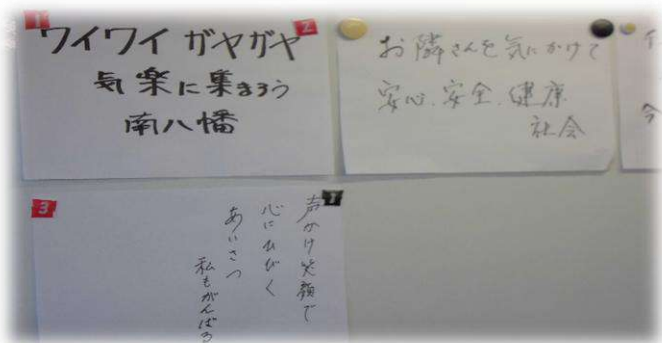 1
ワイワイ ガヤガヤ
2
気楽に集まろう
南八幡
お隣さんを気にかけて
安心、安全、健康
社会
今
3
声かけ笑顔で
心にひびく
あいさつ
私もがんばる